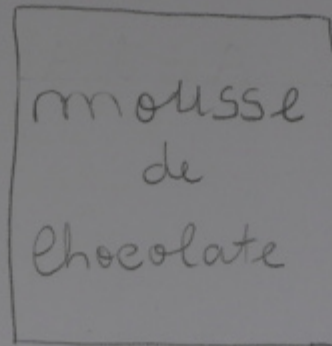 mousse
de
chocolate